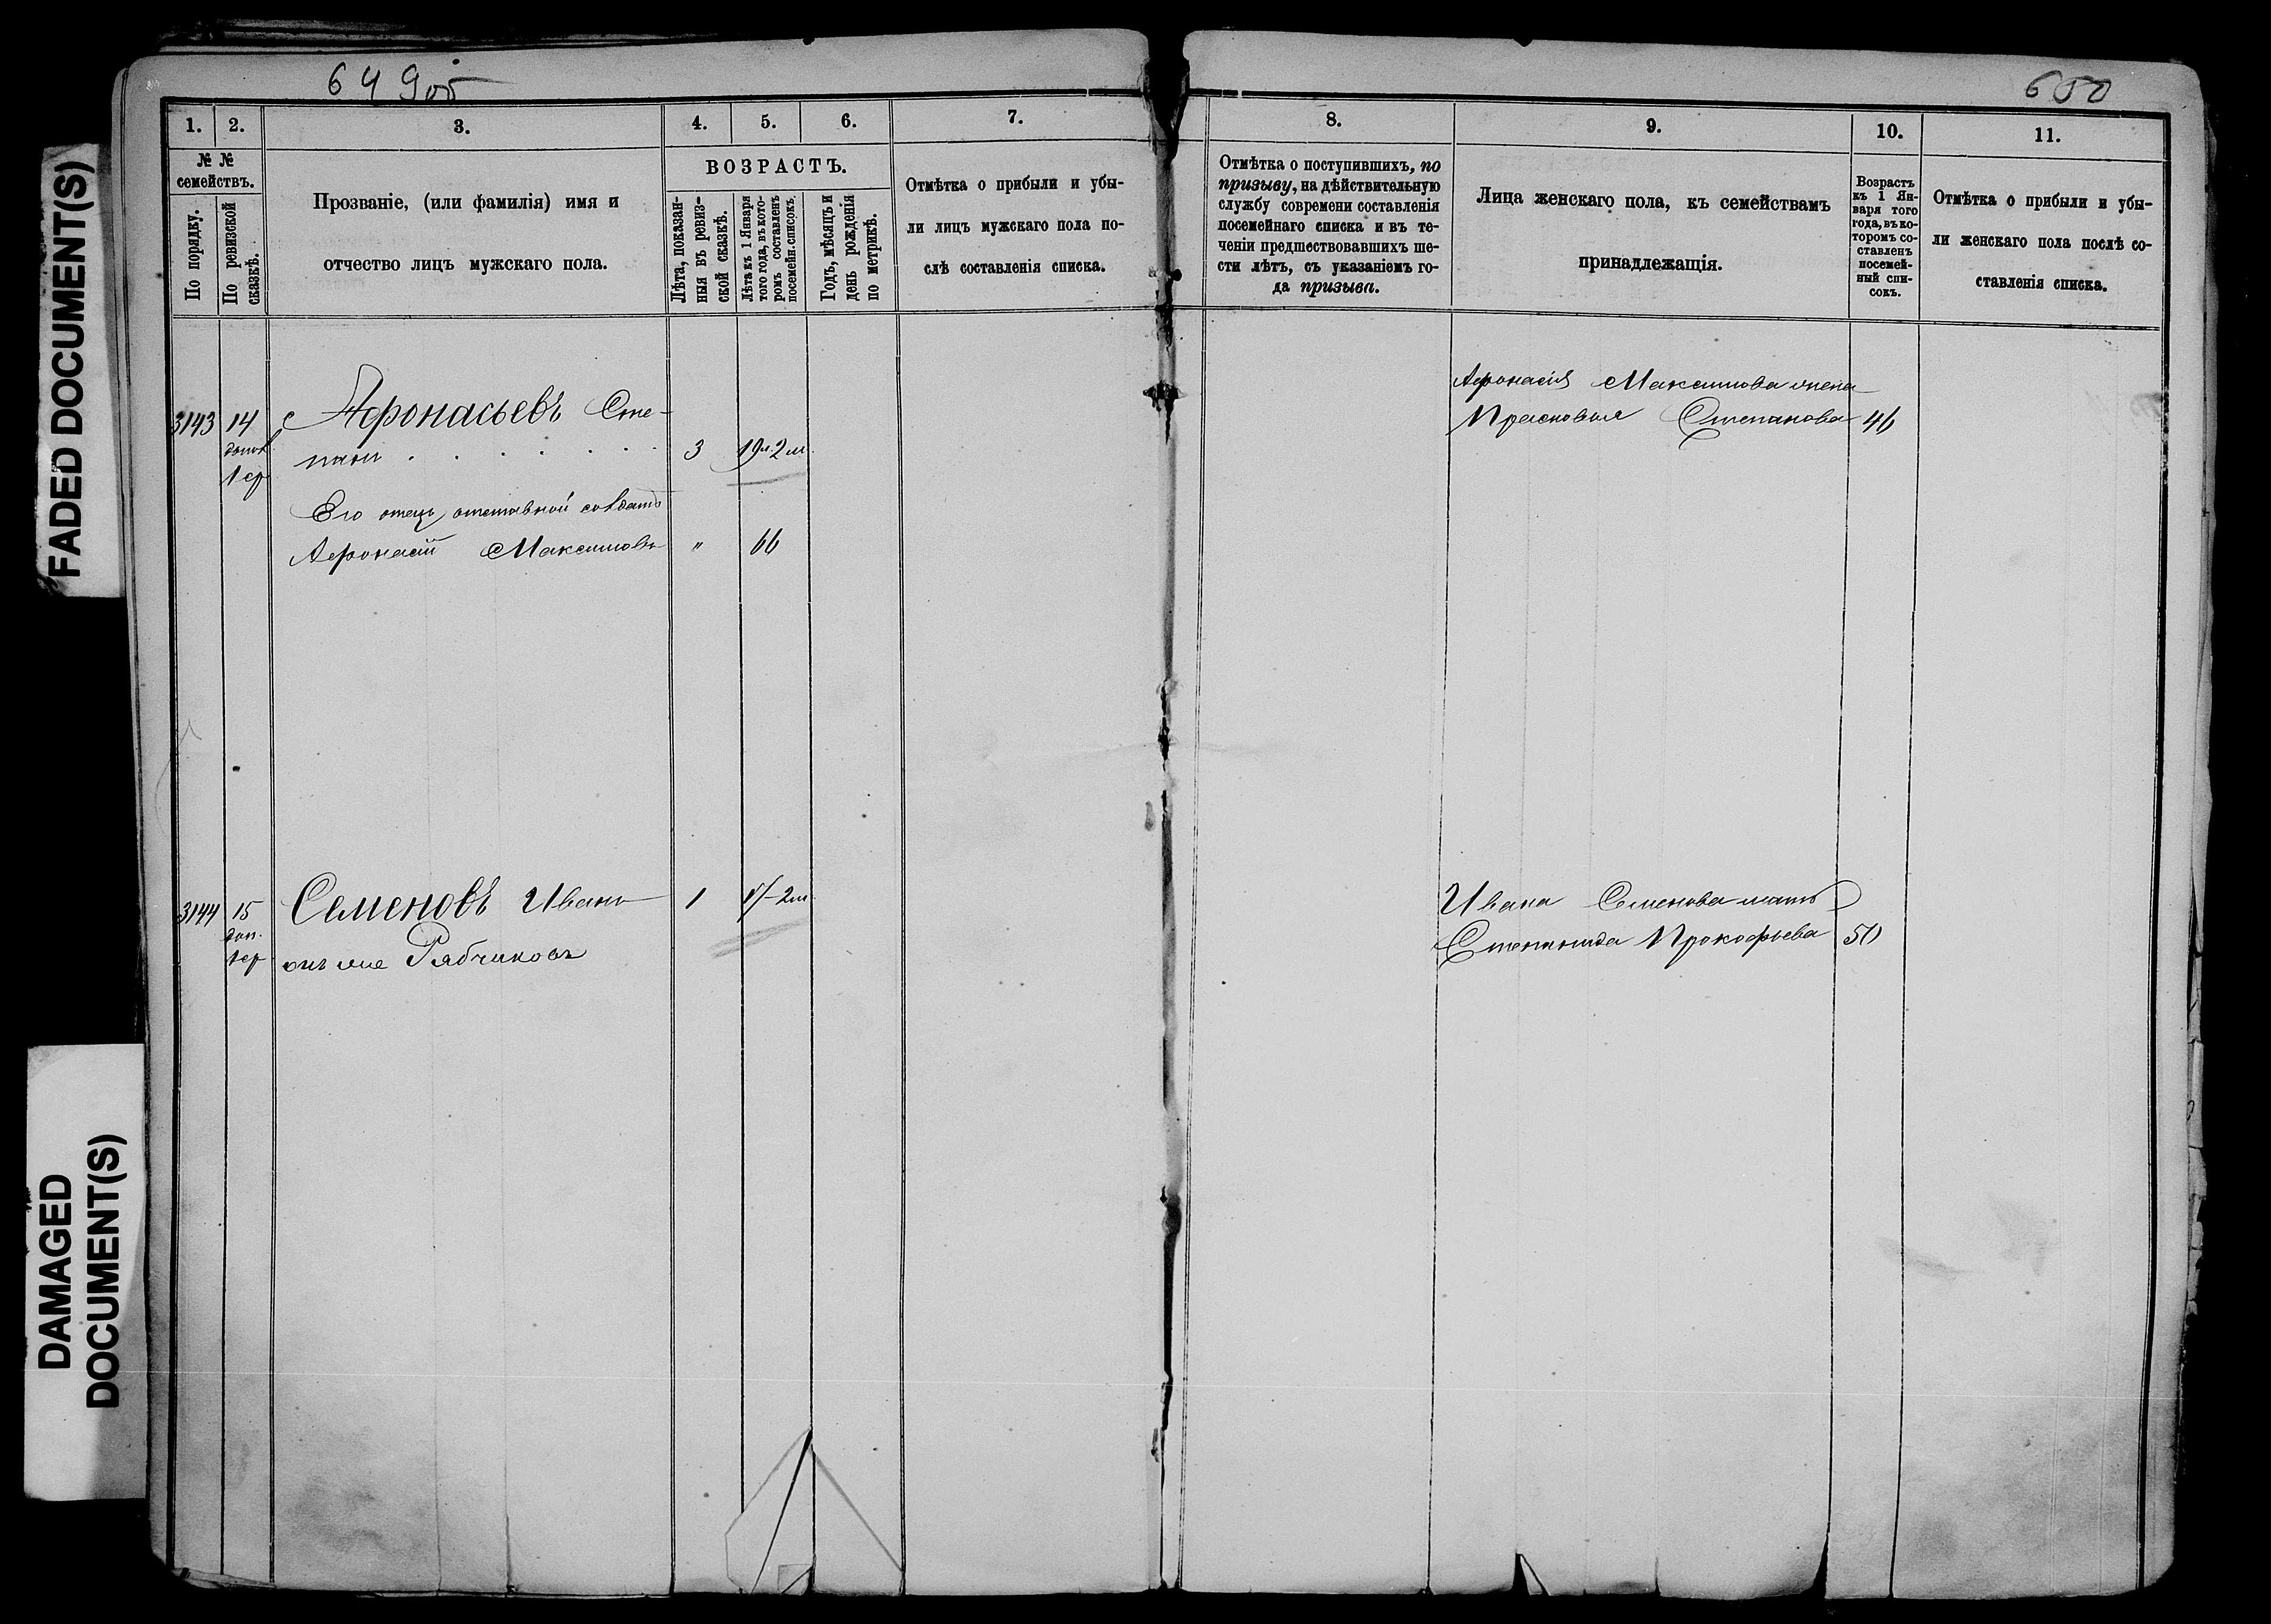 649об
650
1. 2. 3. 4. 5. 6. 7. 8. 9. 10. 11.
№ №
семействъ.
По порядку.
По ревизской
сказкѣ.
Прозваніе, (или фамилія) имя и
отчество лицъ мужскаго пола.
ВОЗРАСТЪ.
Лѣта, показан-
ныя въ ревиз-
ской сказкѣ.
Лѣта къ 1 Января
того года, въ кото-
ромъ составленъ
посемейн. списокъ.
Годъ, мѣсяцъ и
день рожденія
по метрикѣ.
Отмѣтка о прибыли и убы-
ли лицъ мужскаго пола по-
слѣ составленія списка.
Отмѣтка о поступившихъ, по
призыву, на дѣйствительную
службу современи составленія
посемейнаго списка и въ те-
ченіи предшествовавшихъ ше-
сти лѣтъ, съ указаніемъ го-
да призыва.
Лица женскаго пола, къ семействамъ
принадлежащія.
Возрастъ
къ 1 Ян-
варя того
года, въ ко-
торомъ со-
ставленъ
посемей-
ный спи-
сокъ.
Отмѣтка о прибыли и убы-
ли женскаго пола послѣ со-
ставленія списка.
3143 14 Афонасьевъ Сте-
панъ . . . . . . 3 19л.2м.
1 ср
Его отецъ отставной солдатъ
Афонасій Максимовъ " 66
Афонасія Максимова жена
Прасковья Степанова 46
3144 15 Семеновъ Иванъ 1 17-2м.
доп.
1 ср
онъ же Рябчиковъ
Ивана Семенова мать
Степанида Прокофьева 50
FADED DOCUMENT(S)
DAMAGED
DOCUMENT(S)